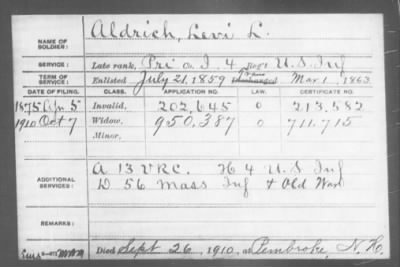 NAME OF SOLDIER: Aldrich, Levi L.
SERVICE: Late rank, Pri Co. I. 4 Reg't U.S. Inf
TERM OF SERVICE: Enlisted July 21, 1859 Trans Discharged Mar. 1, 1863
DATE OF FILING. CLASS. APPLICATION NO. LAW. CERTIFICATE NO.
1875 Apr 5 Invalid, 202,645 0 213,582
1910 Oct 7 Widow, 950,387 0 711,715
Minor,
ADDITIONAL SERVICES: A 13 V.R.C. H 4 U.S. Inf
D 56 Mass Inf & Old War
REMARKS:
Died Sept 26, 1910, at Pembroke, N.H.